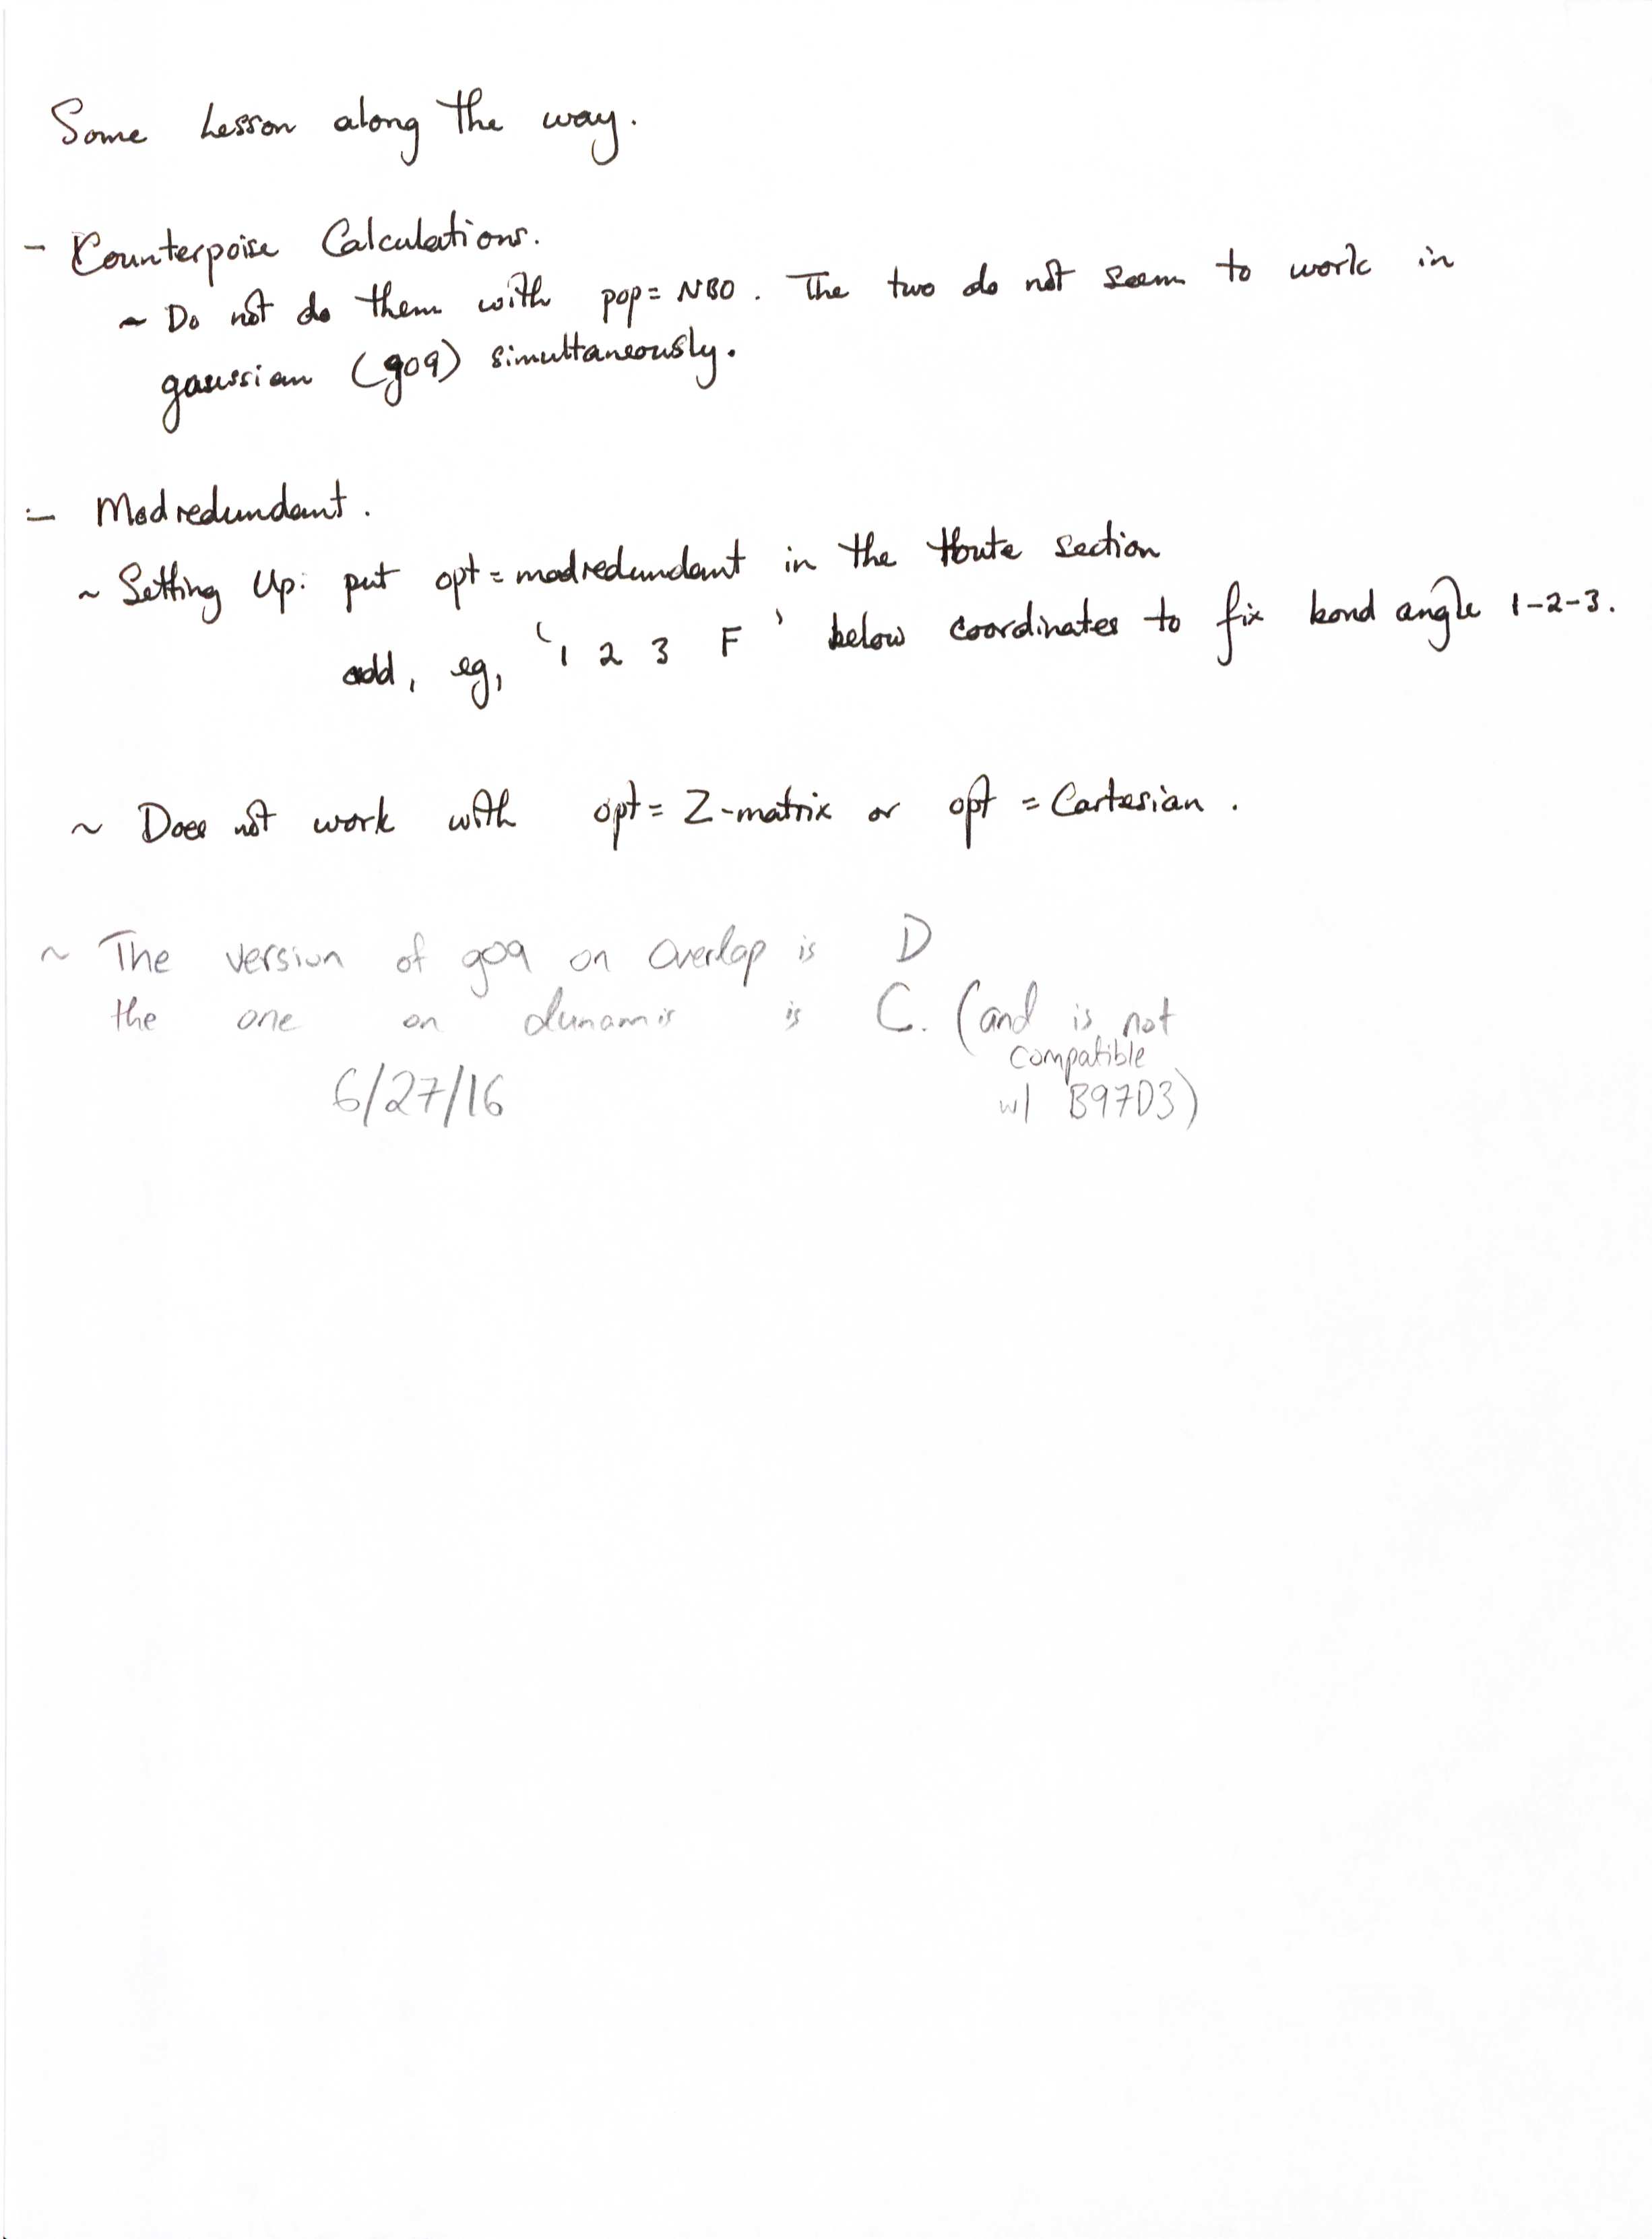 Some Lesson along the way.
- Counterpoise Calculations.
~ Do not do them with pop = NBO. The two do not seem to work in
gaussian (g09) simultaneously.
- Modredundant.
~ Setting Up: put opt = modredundant in the route section
add, eg, '1 2 3 F' below coordinates to fix bond angle 1-2-3.
~ Does not work with opt = Z-matrix or opt = Cartesian.
~ The version of g09 on Overlap is D
the one on dunamis is C. (and is not
compatible
6/27/16 w/ B97D3)